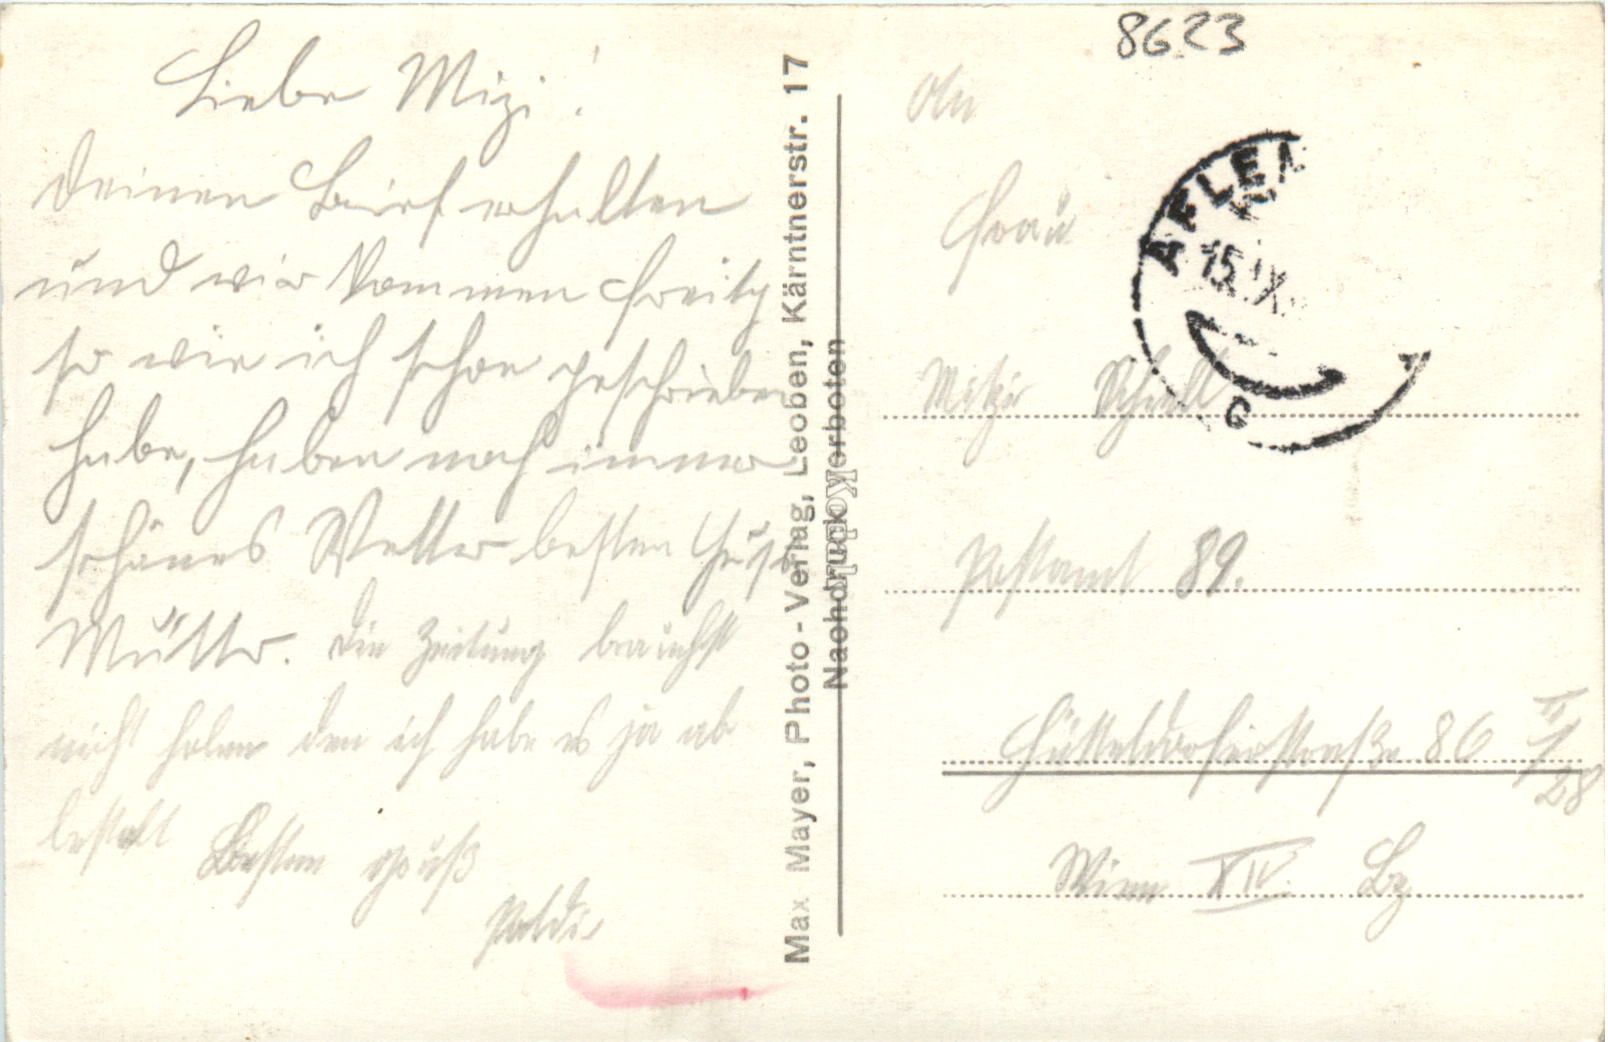 Liebe Mizi!
deinen Brief erhalten
und wir kommen Freitg
so wie ich schon geschrieben
habe, haben noch immer
schönes Wetter besten Gruß
Mutter. die Zeitung brauchst
nicht holen den ich habe es ja ab
bestellt Besten Gruß
Poldi
Max Mayer, Photo-Verlag, Leoben, Kärntnerstr. 17
Nachdruck verboten
Kodak
8623
An
Frau
AFLEN
15. IX.
G
Mitzi
Postamt 89.
Hütteldorferstraße 86 II/28
Wien XIV. Bz